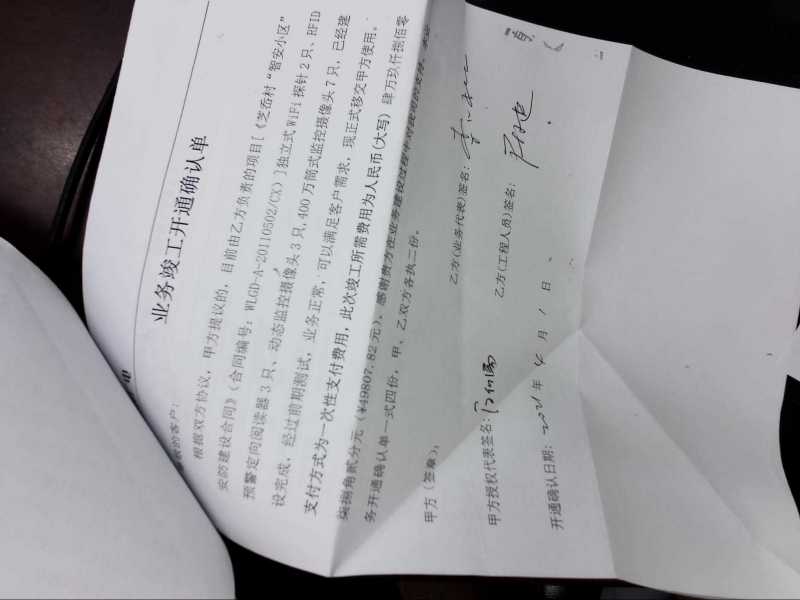 业务竣工开通确认单
敬的客户：
根据双方协议，甲方提议的，目前由乙方负责的项目[《芝岙村“智安小区”
安防建设合同》（合同编号：WLGD-A-20110502/CX）]独立式WiFi探针2只、RFID
预警定向阅读器3只、动态监控摄像头3只，400万筒式监控摄像头7只，已经建
设完成，经过前期测试，业务正常，可以满足客户需求，现正式移交甲方使用。
支付方式为一次性支付费用，此次竣工所需费用为人民币(大写) 肆万玖仟捌佰零
柒捌角贰分元（¥49807.82元）。感谢贵方在业务建设过程中对我司的支持。
务开通确认单一式四份，甲、乙双方各执二份。
甲方（签章）：
乙方(业务代表)签名：
甲方授权代表签名：
乙方(工程人员)签名：
开通确认日期：2021年4月1日